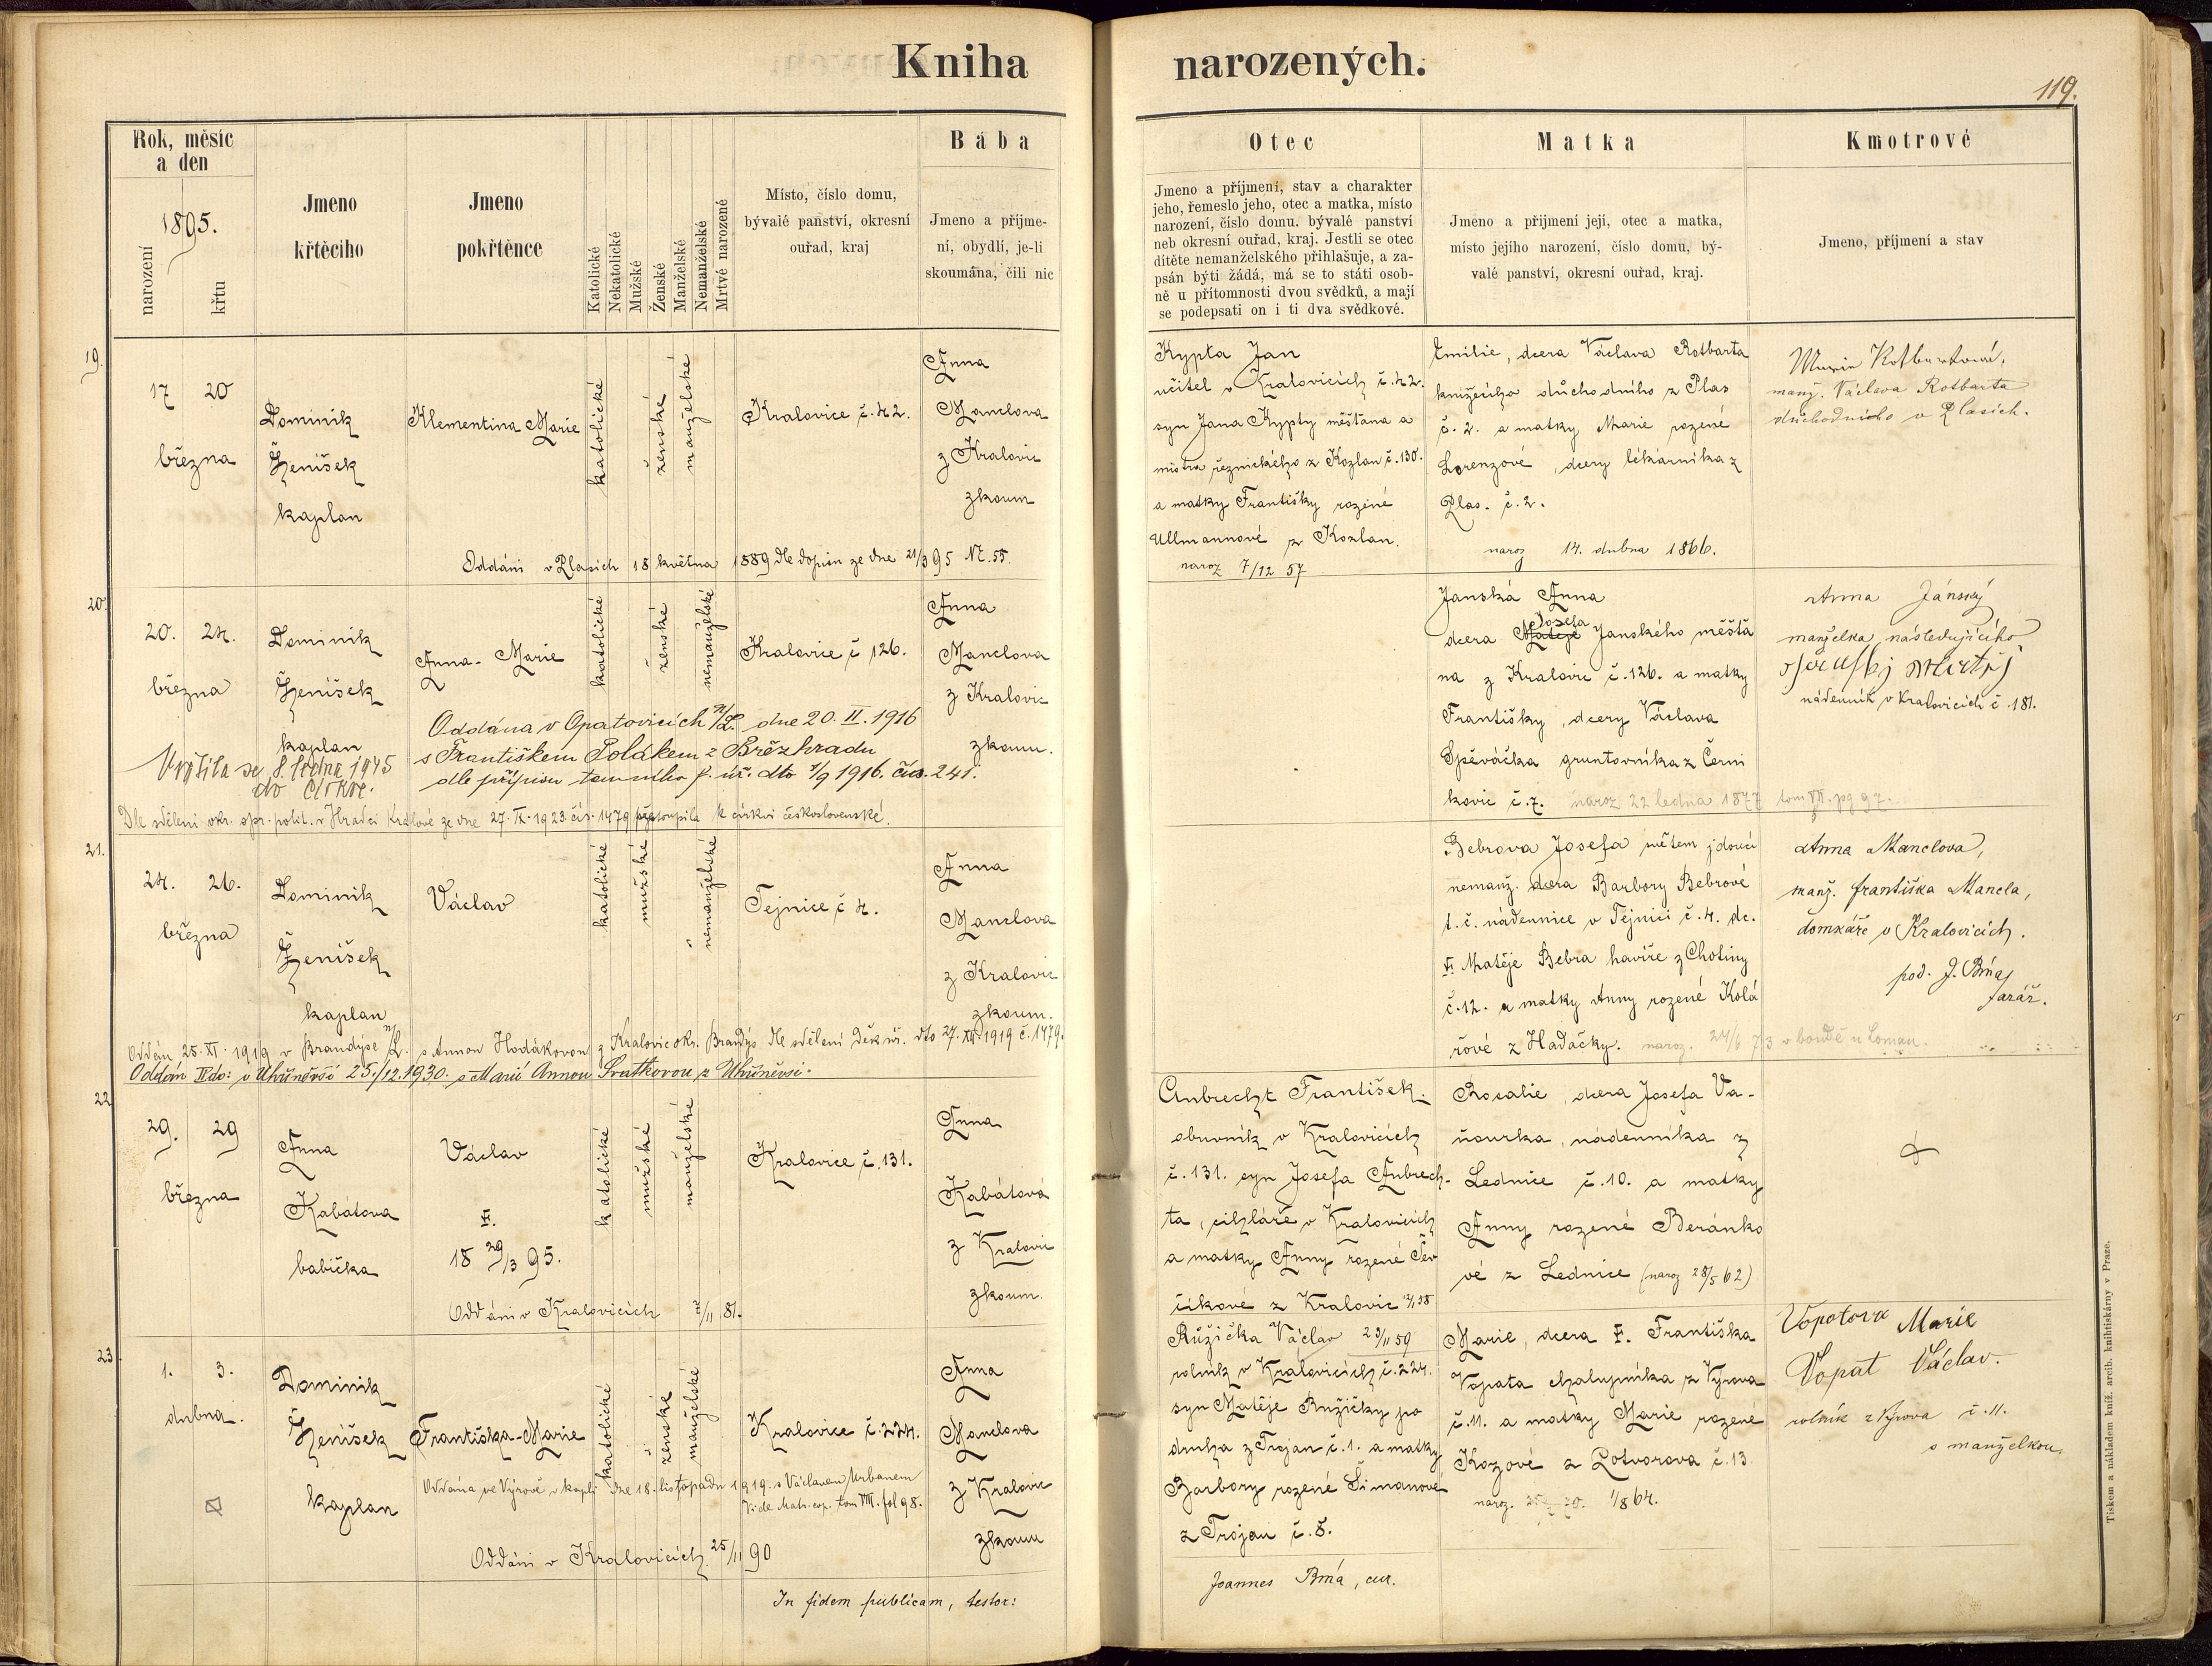 Kniha narozených.
119.
Rok, měsíc
a den
1895.
narození
křtu
Jmeno
křtěcího
Jmeno
pokřtěnce
Katolické
Nekatolické
Mužské
Ženské
Manželské
Nemanželské
Mrtvě narozené
Místo, číslo domu,
bývalé panství, okresní
ouřad, kraj
Bába
Jmeno a příjme-
ní, obydlí, je-li
skoumána, čili nic
Otec
Jmeno a příjmení, stav a charakter
jeho, řemeslo jeho, otec a matka, místo
narození, číslo domu, bývalé panství
neb okresní ouřad, kraj. Jestli se otec
dítěte nemanželského přihlašuje, a za-
psán býti žádá, má se to státi osob-
ně u přítomnosti dvou svědků, a mají
se podepsati on i ti dva svědkové.
Matka
Jmeno a přijmení její, otec a matka,
místo jejího narození, číslo domu, bý-
valé panství, okresní ouřad, kraj.
Kmotrové
Jmeno, příjmení a stav
19.
17 20
března
Dominik
Ženíšek
kaplan
Klementina Marie
katolické
ženské
manželské
Kralovice č. 42.
Anna
Manclova
z Kralovic
zkoum
Oddáni v Plasích 18 května 1889 dle dopisu ze dne 21/3 95 Nr. 55.
Kypta Jan
učitel v Kralovicích č. 42.
syn Jana Kypty měšťana a
mistra řeznického z Kozlan č. 130.
a matky Františky rozené
Ullmannové z Kozlan.
naroz 7/12 57
Emilie, dcera Václava Rotbarta
knížecího důchodního z Plas
č. 2. a matky Marie rozené
Lorenzové, dcery lékárníka z
Plas. č. 2.
naroz 14. dubna 1866.
Marie Rotbartová,
manž. Václava Rotbarta
důchodního v Plasích.
20.
20. 24.
března
Dominik
Ženíšek
kaplan
Anna-Marie
katolické
ženské
nemanželské
Kralovice č 126.
Anna
Manclova
z Kralovic
zkoum.
Oddána v Opatovicích n/L. dne 20. II. 1916
s Františkem Polákem z Březhradu
dle přípisu tamního f. úř. dto 1/9 1916. čís. 241.
Vrátila se 8. ledna 1945
do církve.
Dle sdělení okr. spr. polit. v Hradci Králové ze dne 27. IX. 1923 čís. 1479 přestoupila k církvi československé.
Janská Anna
Josefa
dcera Matěje Janského měšťa
na z Kralovic č. 126. a matky
Františky, dcery Václava
Spěváčka gruntovníka z Černi
kovic č. 7. naroz 22 ledna 1877 tom VII. pg 97.
Anna Jánský
manželka následujícího
nádenník v Kralovicích č. 181.
21.
24. 26.
března
Dominik
Ženíšek
kaplan
Václav
katolické
mužské
nemanželské
Tejnice č 4.
Anna
Manclova
z Kralovic
zkoum.
Oddán 25. XI. 1919 v Brandýse n/L. s Annou Hodákovou z Kralovic okr. Brandýs dle sdělení Děk. úř. dto 27. XII. 1919 č. 1479.
Oddán II do: v Uhříněvsi 25./12. 1930. s Marií Annou Svatkovou z Uhříněvsi.
Bebrova Josefa světem jdoucí
nemanž. dcera Barbory Bebrové
t. č. nádennice v Tejnici č. 4. dc.
Matěje Bebra havíře z Chotiny
č. 12. a matky Anny rozené Kolá
řové z Hadačky. naroz. 24/6 73 v boudě u Loman.
Anna Manclova,
manž. františka Mancla,
domkáře v Kralovicích.
pod. J. Brňaj
farář.
22
29. 29
března
Anna
Kabátova
babička
Václav
18 29/3 95.
katolické
mužské
manželské
Kralovice č. 131.
Anna
Kabátová
z Kralovic
zkoum.
Oddáni v Kralovicích /11 81.
Aubrecht František.
obuvník v Kralovicích
č. 131. syn Josefa Aubrech-
ta, cihláře v Kralovicích
a matky Anny rozené Šev
číkové z Kralovic
Rosalie, dcera Josefa Va-
ňourka, nádenníka z
Lednice č. 10. a matky
Anny rozené Beránko
vé z Lednice (naroz 28/5 62)
23.
1. 3.
dubna.
Dominik
Ženíšek
kaplan
Františka-Marie
katolické
ženské
manželské
Kralovice č. 224.
Anna
Manclova
z Kralovic
zkoum
Oddána ve Výrově v kapli dne 18. listopadu 1919. s Václavem Urbanem
Vide Matr. cop. tom VIII. fol 98.
Oddáni v Kralovicích 25/11 90
Růžička Václav 29/11 59
rolník v Kralovicích č. 224.
syn Matěje Růžičky po
druha z Trojan č. 1. a matky
Barbory rozené Šimanové
z Trojan č. 8.
Marie, dcera Františka
Vopata chalupníka z Výrova
č. 11. a matky Marie rozené
Kozové z Potvorova č. 13
naroz. 1/8 64.
Vopatova Marie
Vopat Václav.
rolník z Výrova č. 11.
s manželkou.
In fidem publicam, testor:
Joannes Brňa, cur.
Tiskem a nákladem kníž. arcib. knihtiskárny v Praze.